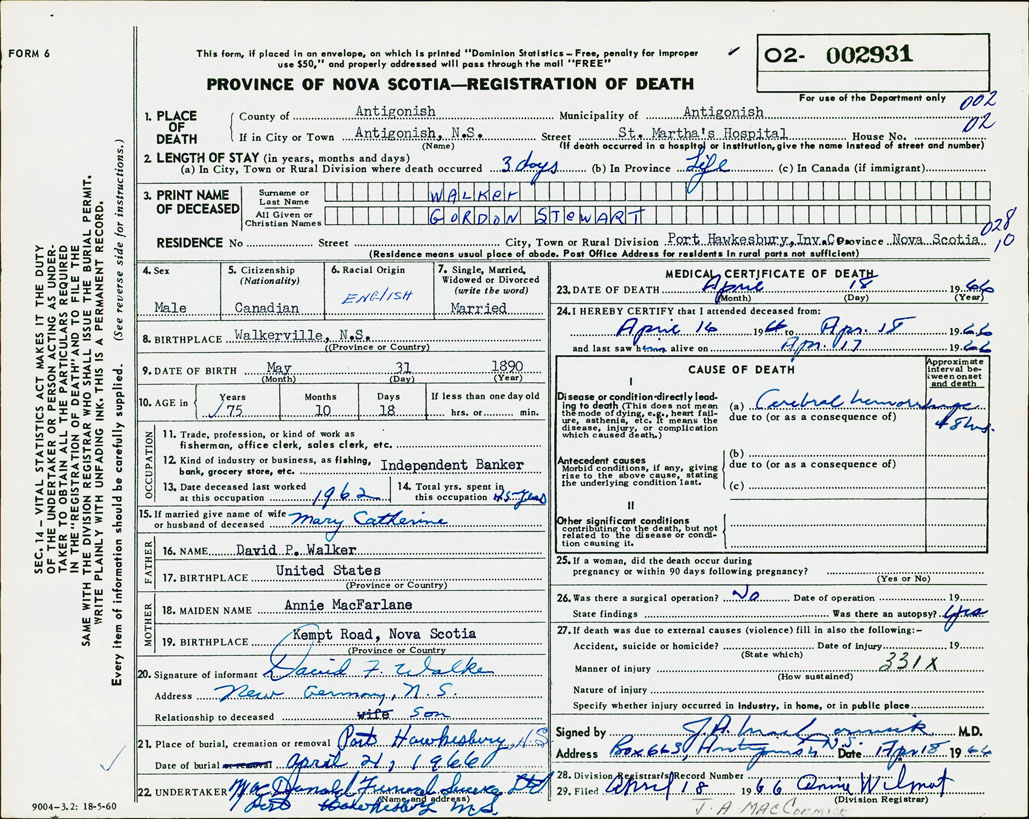 FORM 6
This form, if placed in an envelope, on which is printed "Dominion Statistics – Free, penalty for improper
use $50," and properly addressed will pass through the mail "FREE"
PROVINCE OF NOVA SCOTIA—REGISTRATION OF DEATH
02- 002931
For use of the Department only
002
02
1. PLACE OF DEATH
County of Antigonish Municipality of Antigonish
If in City or Town Antigonish, N.S. Street St. Martha's Hospital House No.
(Name) (If death occurred in a hospital or institution, give the name instead of street and number)
2. LENGTH OF STAY (in years, months and days)
(a) In City, Town or Rural Division where death occurred 3 days (b) In Province Life (c) In Canada (if immigrant)
3. PRINT NAME OF DECEASED
Surname or Last Name WALKER
All Given or Christian Names GORDON STEWART
028
10
RESIDENCE No Street City, Town or Rural Division Port Hawkesbury, Inv. Co. Province Nova Scotia
(Residence means usual place of abode. Post Office Address for residents in rural parts not sufficient)
4. Sex
Male
5. Citizenship
(Nationality)
Canadian
6. Racial Origin
ENGLISH
7. Single, Married,
Widowed or Divorced
(write the word)
Married
8. BIRTHPLACE Walkerville, N.S.
(Province or Country)
9. DATE OF BIRTH May 31 1890
(Month) (Day) (Year)
10. AGE in Years Months Days If less than one day old
75 10 18 hrs. or min.
OCCUPATION
11. Trade, profession, or kind of work as
fisherman, office clerk, sales clerk, etc.
12. Kind of industry or business, as fishing,
bank, grocery store, etc. Independent Banker
13. Date deceased last worked
at this occupation 1962
14. Total yrs. spent in
this occupation 45 years
15. If married give name of wife
or husband of deceased Mary Catherine
FATHER
16. NAME David P. Walker
17. BIRTHPLACE United States
(Province or Country)
MOTHER
18. MAIDEN NAME Annie MacFarlane
19. BIRTHPLACE Kempt Road, Nova Scotia
(Province or Country)
20. Signature of informant David F. Walker
Address New Germany, N.S.
Relationship to deceased wife son
21. Place of burial, cremation or removal Port Hawkesbury, N.S
Date of burial or removal April 21, 1966
22. UNDERTAKER MacDonald Funeral Service Ltd
(Name and address)
Port Hawkesbury N.S.
9004–3.2: 18-5-60
MEDICAL CERTIFICATE OF DEATH
23. DATE OF DEATH April 18 1966
(Month) (Day) (Year)
24. I HEREBY CERTIFY that I attended deceased from:
April 16 1966 to Apr. 18 1966
and last saw him alive on Apr. 17 1966
CAUSE OF DEATH
Approximate
interval be-
tween onset
and death
I
Disease or condition directly lead-
ing to death (This does not mean
the mode of dying, e.g., heart fail-
ure, asthenia, etc. It means the
disease, injury, or complication
which caused death.)
(a) Cerebral hemorrhage
due to (or as a consequence of) 48 hrs.
Antecedent causes
Morbid conditions, if any, giving
rise to the above cause, stating
the underlying condition last.
(b)
due to (or as a consequence of)
(c)
II
Other significant conditions
contributing to the death, but not
related to the disease or condi-
tion causing it.
25. If a woman, did the death occur during
pregnancy or within 90 days following pregnancy?
(Yes or No)
26. Was there a surgical operation? No Date of operation 19
State findings Was there an autopsy? Yes
27. If death was due to external causes (violence) fill in also the following:–
Accident, suicide or homicide? Date of injury 19
(State which)
331X
Manner of injury
(How sustained)
Nature of injury
Specify whether injury occurred in industry, in home, or in public place
Signed by J.A. MacCormick M.D.
Address Box 663, Antigonish N.S. Date Apr 18 1966
28. Division Registrar's Record Number
29. Filed April 18 1966 Annie Wilmot
(Division Registrar)
J. A MACCORMICK
SEC. 14 – VITAL STATISTICS ACT MAKES IT THE DUTY
OF THE UNDERTAKER OR PERSON ACTING AS UNDER-
TAKER TO OBTAIN ALL THE PARTICULARS REQUIRED
IN THE "REGISTRATION OF DEATH" AND TO FILE THE
SAME WITH THE DIVISION REGISTRAR WHO SHALL ISSUE THE BURIAL PERMIT.
WRITE PLAINLY WITH UNFADING INK. THIS IS A PERMANENT RECORD.
Every item of information should be carefully supplied. (See reverse side for instructions.)